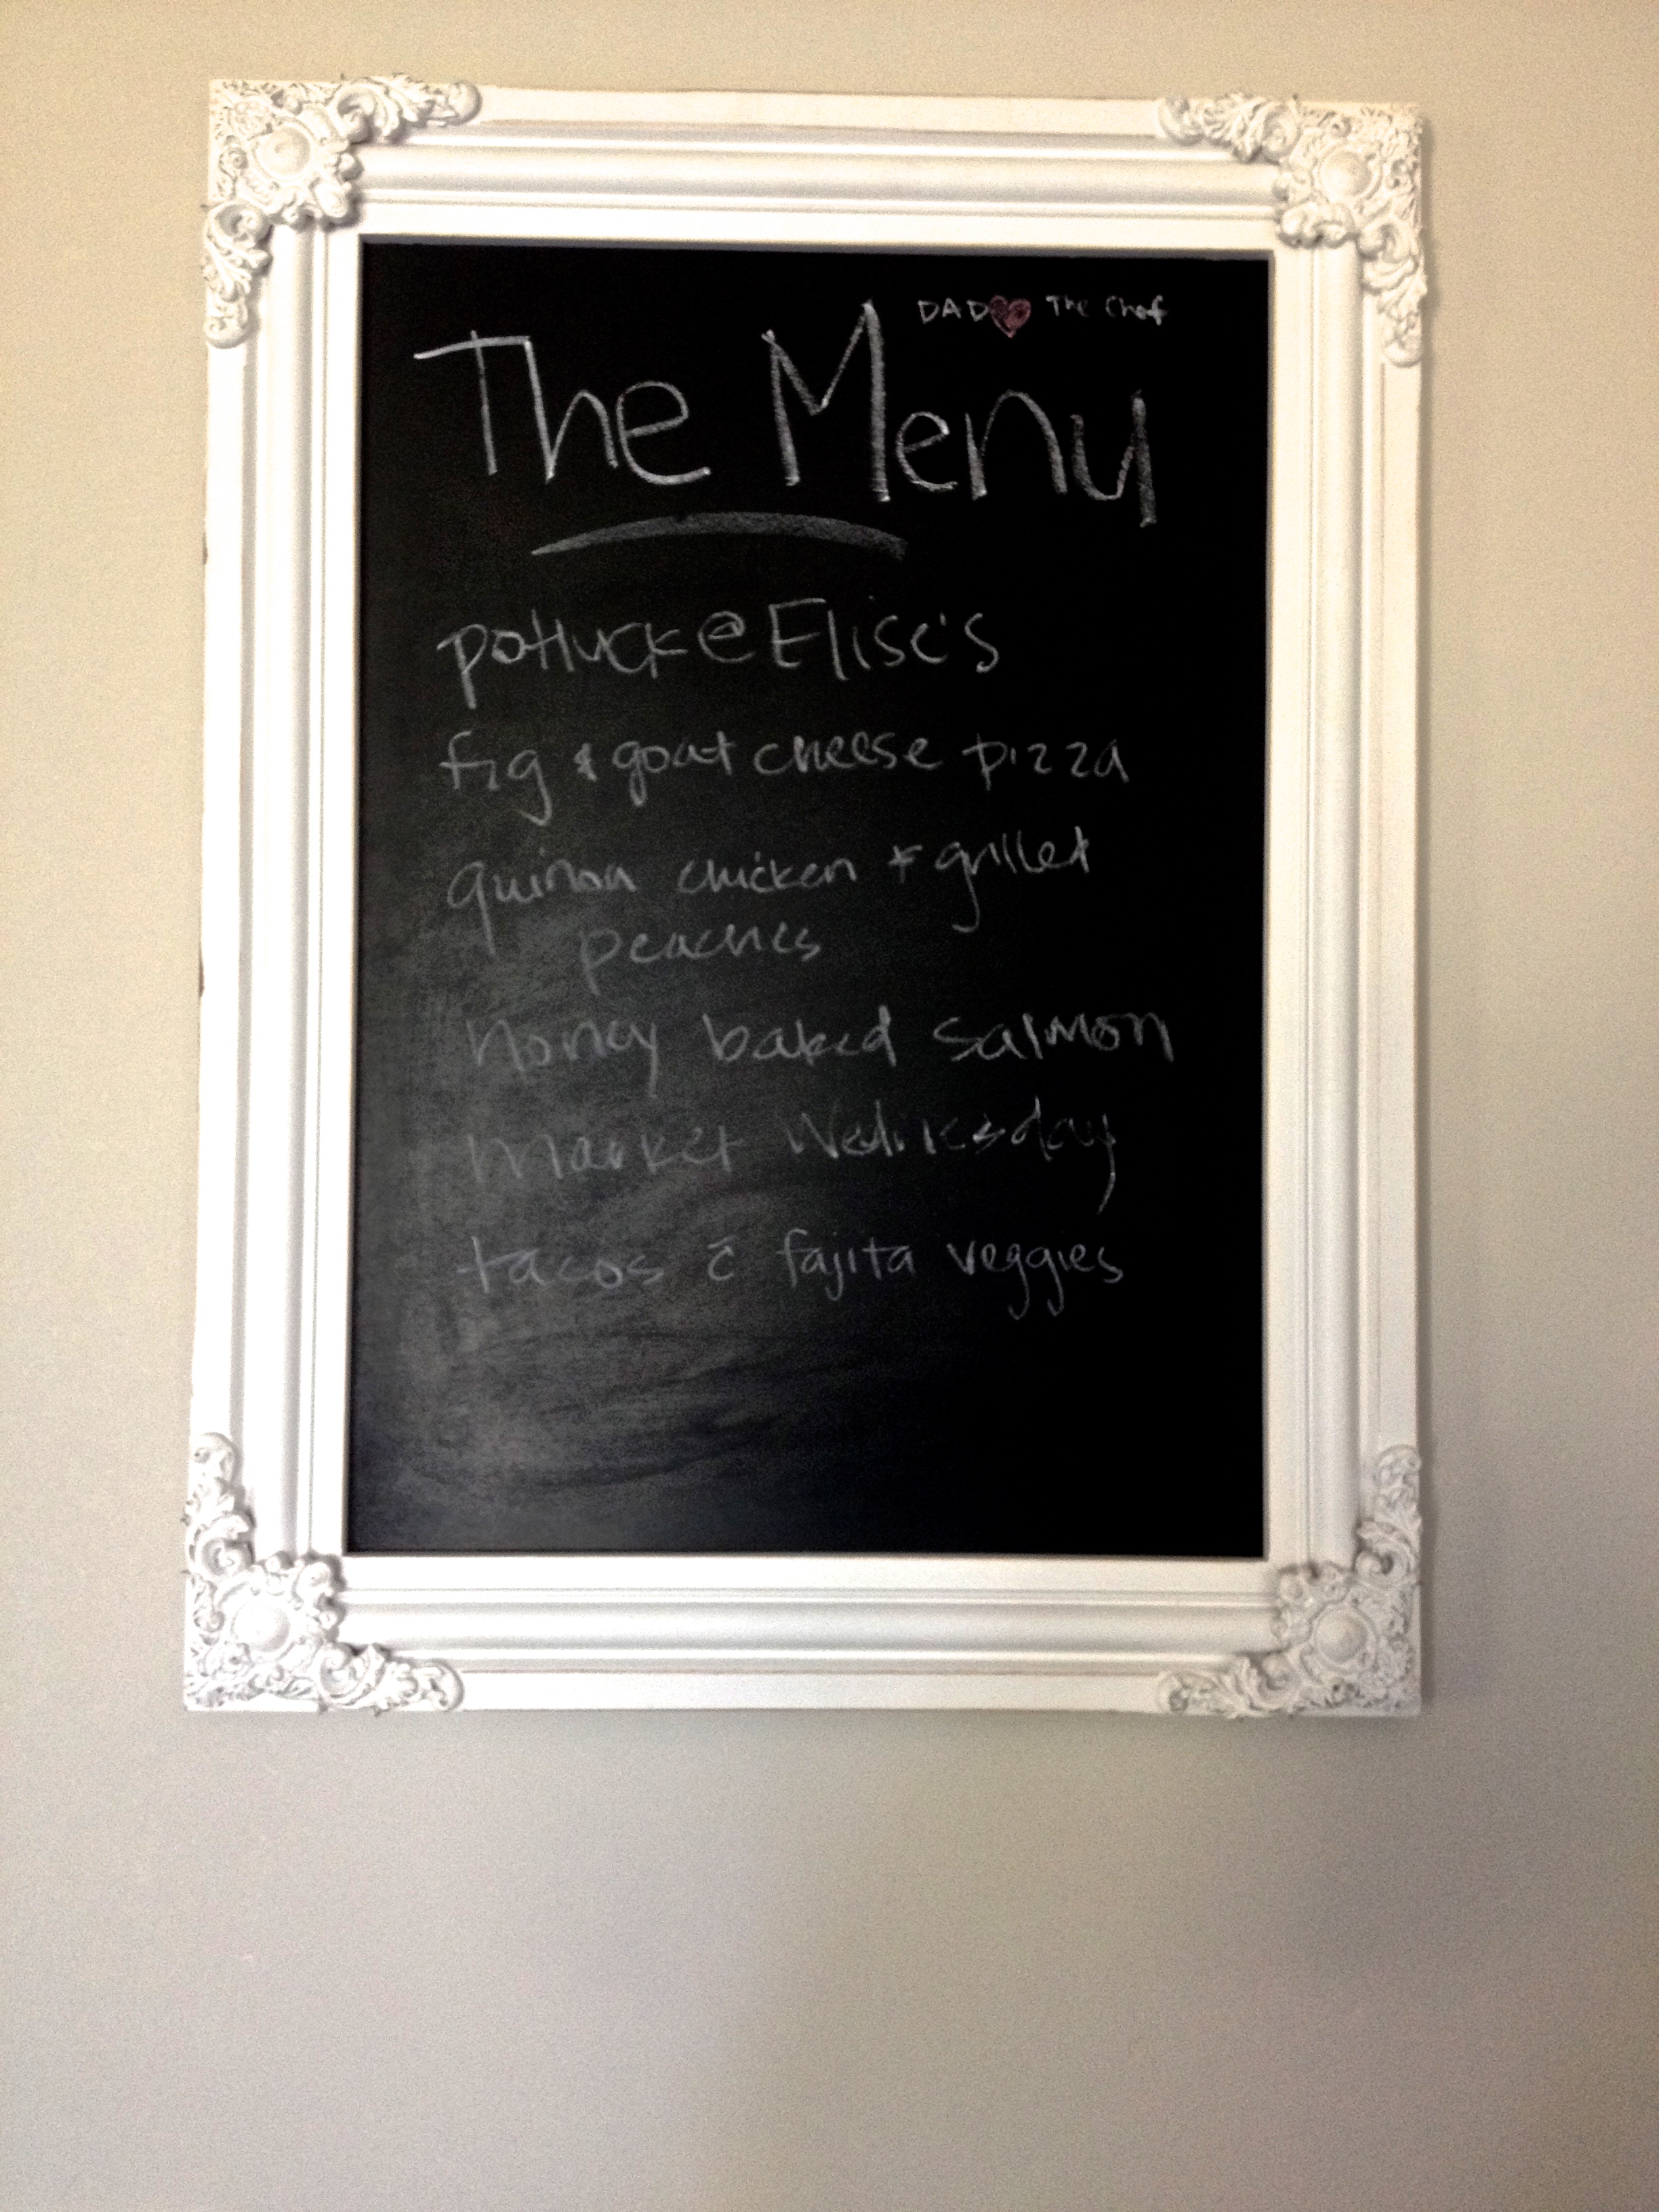 DAD ❤ The Chef
The Menu
potluck @ Elise's
fig & goat cheese pizza
quinoa chicken & grilled
peaches
honey baked salmon
market Wednesday
tacos c̄ fajita veggies